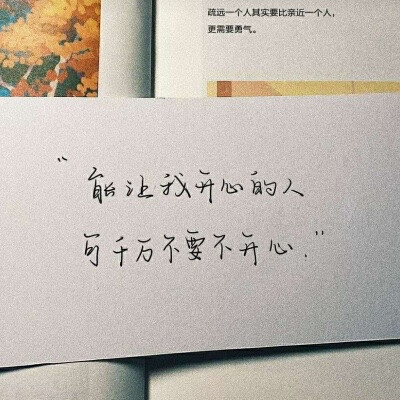 疏远一个人其实要比亲近一个人，
更需要勇气。
“能让我开心的人
可千万不要不开心.”